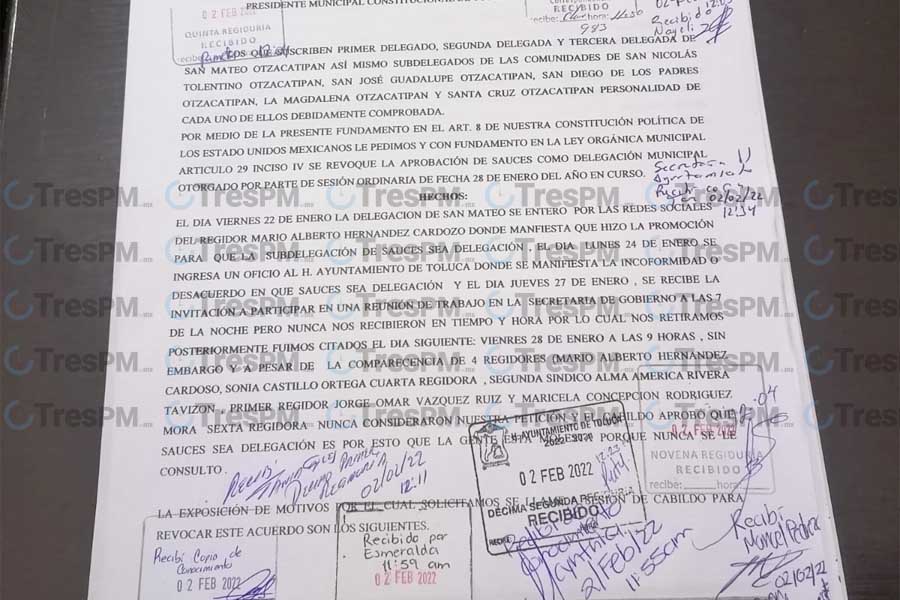 PRESIDENTE MUNICIPAL CONSTITUCIONAL
02 FEB 2022
QUINTA REGIDURIA
RECIBIDO
RECIBIDO
recibe: hora: 11:50
983
Recibido
Nayeli
LOS QUE SUSCRIBEN PRIMER DELEGADO, SEGUNDA DELEGADA Y TERCERA DELEGADA DE
SAN MATEO OTZACATIPAN ASÍ MISMO SUBDELEGADOS DE LAS COMUNIDADES DE SAN NICOLÁS
TOLENTINO OTZACATIPAN, SAN JOSÉ GUADALUPE OTZACATIPAN, SAN DIEGO DE LOS PADRES
OTZACATIPAN, LA MAGDALENA OTZACATIPAN Y SANTA CRUZ OTZACATIPAN PERSONALIDAD DE
CADA UNO DE ELLOS DEBIDAMENTE COMPROBADA.
POR MEDIO DE LA PRESENTE FUNDAMENTO EN EL ART. 8 DE NUESTRA CONSTITUCIÓN POLÍTICA DE
LOS ESTADO UNIDOS MEXICANOS LE PEDIMOS Y CON FUNDAMENTO EN LA LEY ORGÁNICA MUNICIPAL
ARTICULO 29 INCISO IV SE REVOQUE LA APROBACIÓN DE SAUCES COMO DELEGACIÓN MUNICIPAL
OTORGADO POR PARTE DE SESIÓN ORDINARIA DE FECHA 28 DE ENERO DEL AÑO EN CURSO.
Secretaría
Ayuntamiento
02/02/22
12:34
HECHOS:
EL DIA VIERNES 22 DE ENERO LA DELEGACION DE SAN MATEO SE ENTERO POR LAS REDES SOCIALES
DEL REGIDOR MARIO ALBERTO HERNANDEZ CARDOZO DONDE MANFIESTA QUE HIZO LA PROMOCIÓN
PARA QUE LA SUBDELEGACIÓN DE SAUCES SEA DELEGACIÓN , EL DIA LUNES 24 DE ENERO SE
INGRESA UN OFICIO AL H. AYUNTAMIENTO DE TOLUCA DONDE SE MANIFIESTA LA INCOFORMIDAD O
DESACUERDO EN QUE SAUCES SEA DELEGACIÓN Y EL DIA JUEVES 27 DE ENERO , SE RECIBE LA
INVITACIÓN A PARTICIPAR EN UNA REUNIÓN DE TRABAJO EN LA SECRETARIA DE GOBIERNO A LAS 7
DE LA NOCHE PERO NUNCA NOS RECIBIERON EN TIEMPO Y HORA POR LO CUAL NOS RETIRAMOS
POSTERIORMENTE FUIMOS CITADOS EL DIA SIGUIENTE: VIERNES 28 DE ENERO A LAS 9 HORAS , SIN
EMBARGO Y A PESAR DE LA COMPARECENCIA DE 4 REGIDORES (MARIO ALBERTO HERNÁNDEZ
CARDOSO, SONIA CASTILLO ORTEGA CUARTA REGIDORA , SEGUNDA SINDICO ALMA AMERICA RIVERA
TAVIZON , PRIMER REGIDOR JORGE OMAR VAZQUEZ RUIZ Y MARICELA CONCEPCION RODRIGUEZ
MORA SEXTA REGIDORA NUNCA CONSIDERARON NUESTRA PETICIÓN Y EL CABILDO APROBÓ QUE
SAUCES SEA DELEGACIÓN ES POR ESTO QUE LA GENTE ESTA MOLESTA PORQUE NUNCA SE LE
CONSULTO .
Primer
Regiduría
02/02/22
12:11
H. AYUNTAMIENTO DE TOLUCA
2022 - 2024
02 FEB 2022
12:23
DÉCIMA SEGUNDA REGIDURIA
RECIBIDO
2/Feb/22
11:55am
12:04
02 FEB 2022
NOVENA REGIDURIA
RECIBIDO
recibe: hora:
LA EXPOSICIÓN DE MOTIVOS POR EL CUAL SOLICITAMOS SE LLAME A SESIÓN DE CABILDO PARA
REVOCAR ESTE ACUERDO SON LOS SIGUIENTES.
Recibí Copia de
Conocimiento
02 FEB 2022
Recibido por
Esmeralda
11:59 am
02 FEB 2022
Recibí
02/02/22
TresPM.mx